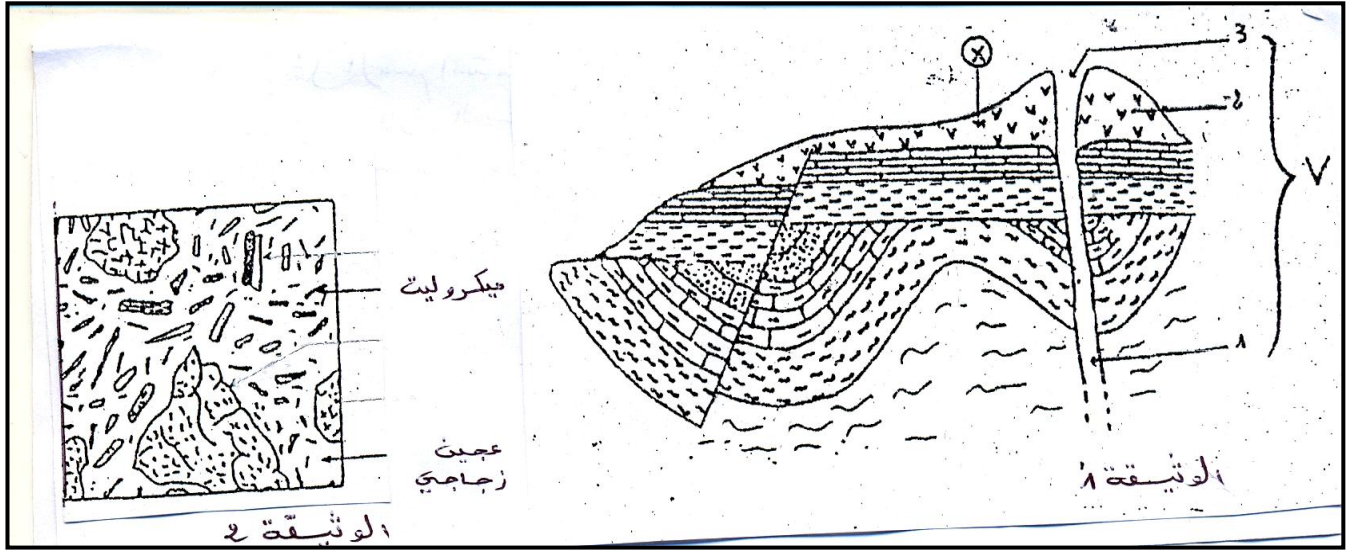 X
3
2
V
1
الوثيقة 1
ميكروليت
عجين
زجاجي
الوثيقة 2